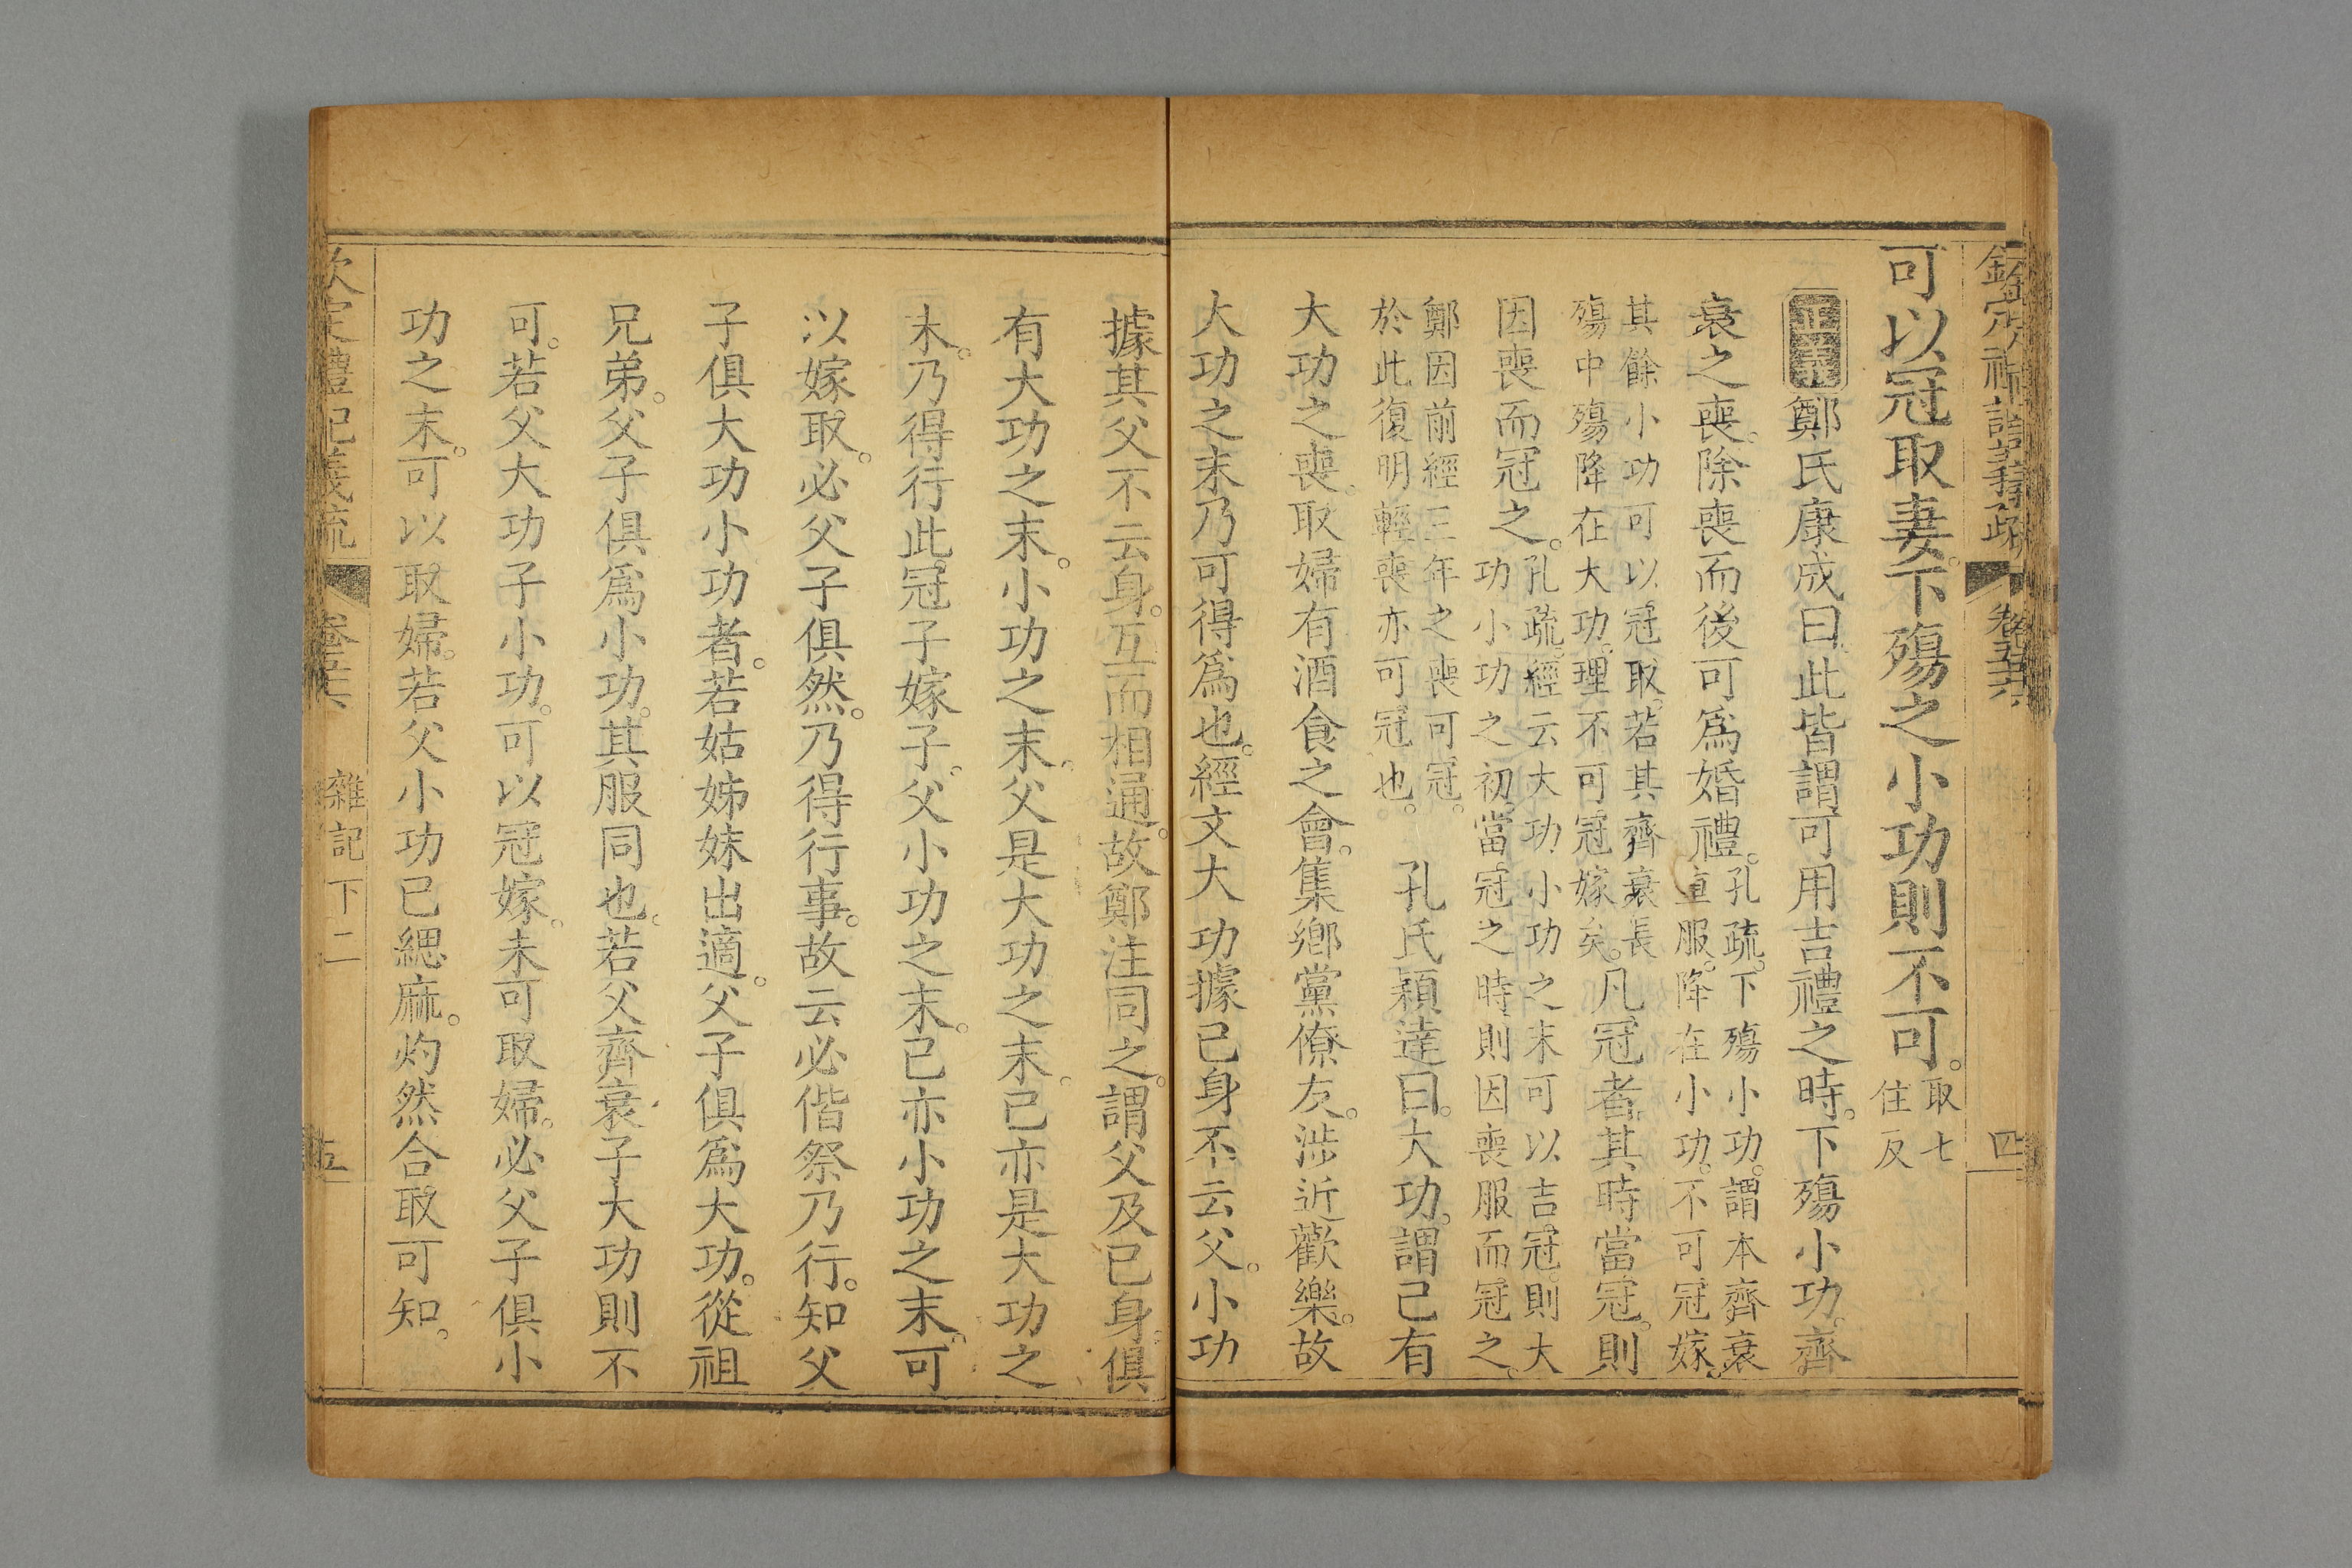 欽定禮記義疏 卷五十六 四
可以冠取妻。下殤之小功則不可。取七住反
正義 鄭氏康成曰。此皆謂可用吉禮之時。下殤小功。齊
衰之喪。除喪而後可爲婚禮。孔疏。下殤小功。謂本齊衰
直服。降在小功。不可冠嫁。
其餘小功可以冠取。若其齊衰長
殤中殤降在大功。理不可冠嫁矣。凡冠者。其時當冠。則
因喪而冠之。孔疏。經云大功小功之末可以吉冠。則大
功小功之初。當冠之時則因喪服而冠之。
鄭因前經三年之喪可冠。
於此復明輕喪亦可冠也。 孔氏穎達曰。大功。謂己有
大功之喪。取婦有酒食之會。集鄉黨僚友。涉近歡樂。故
大功之末乃可得爲也。經文大功據己身不云父。小功
據其父不云身。互而相通。故鄭注同之。謂父及已身。俱
有大功之末。小功之末。父是大功之末。已亦是大功之
末。乃得行此。冠子嫁子。父小功之末。已亦小功之末。可
以嫁取。必父子俱然。乃得行事。故云必偕祭乃行。知父
子俱大功小功者。若姑姊妹出適。父子俱爲大功。從祖
兄弟。父子俱爲小功。其服同也。若父齊衰子大功則不
可。若父大功子小功。可以冠嫁。未可取婦。必父子俱小
功之末。可以取婦。若父小功已緦麻。灼然合取可知。
欽定禮記義疏 卷五十六 雜記下二 五